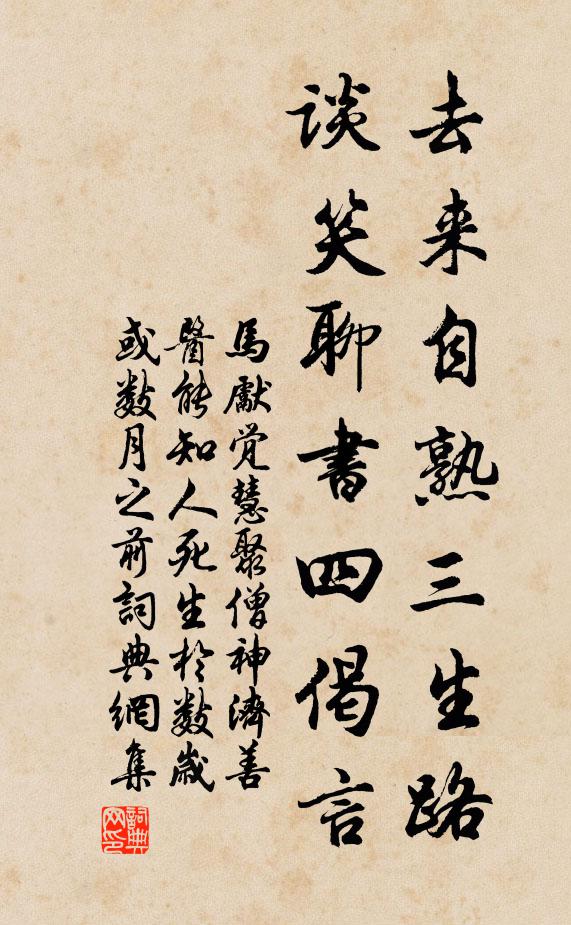 去来自熟三生路
谈笑聊书四偈言
馬獻覚慧聚僧神濟善
醫能知人死生於数歲
或数月之前詞典網集
詞典网印